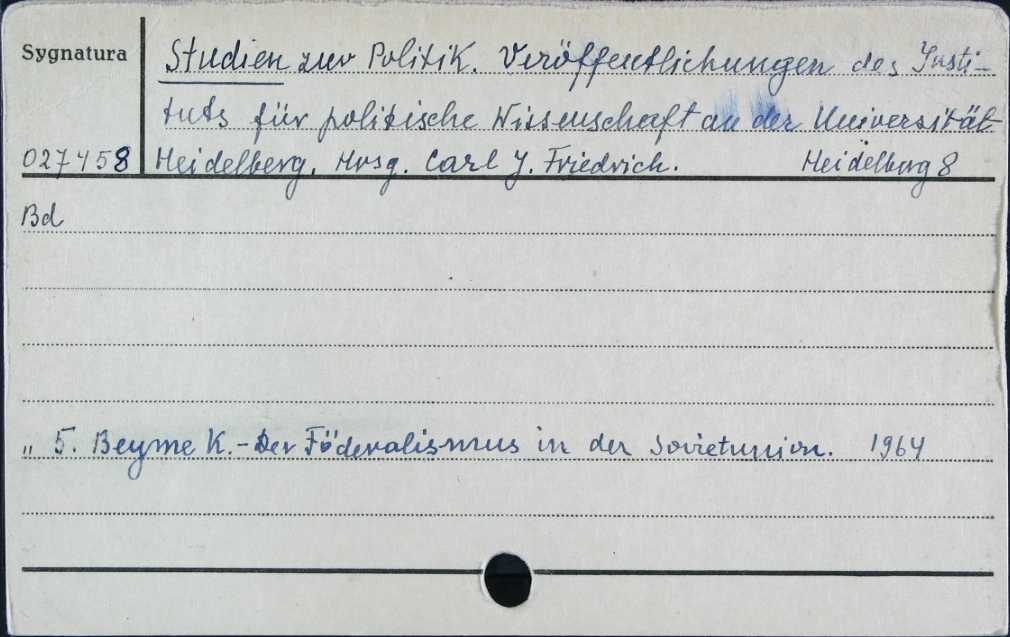 Sygnatura
Studien zur Politik. Veröffentlichungen des Insti-
tuts für politische Wissenschaft an der Universität
027458 Heidelberg. Hrsg. Carl J. Friedrich. Heidelberg 8
Bd
„ 5. Beyme K. - Der Föderalismus in der Sovietunion. 1964